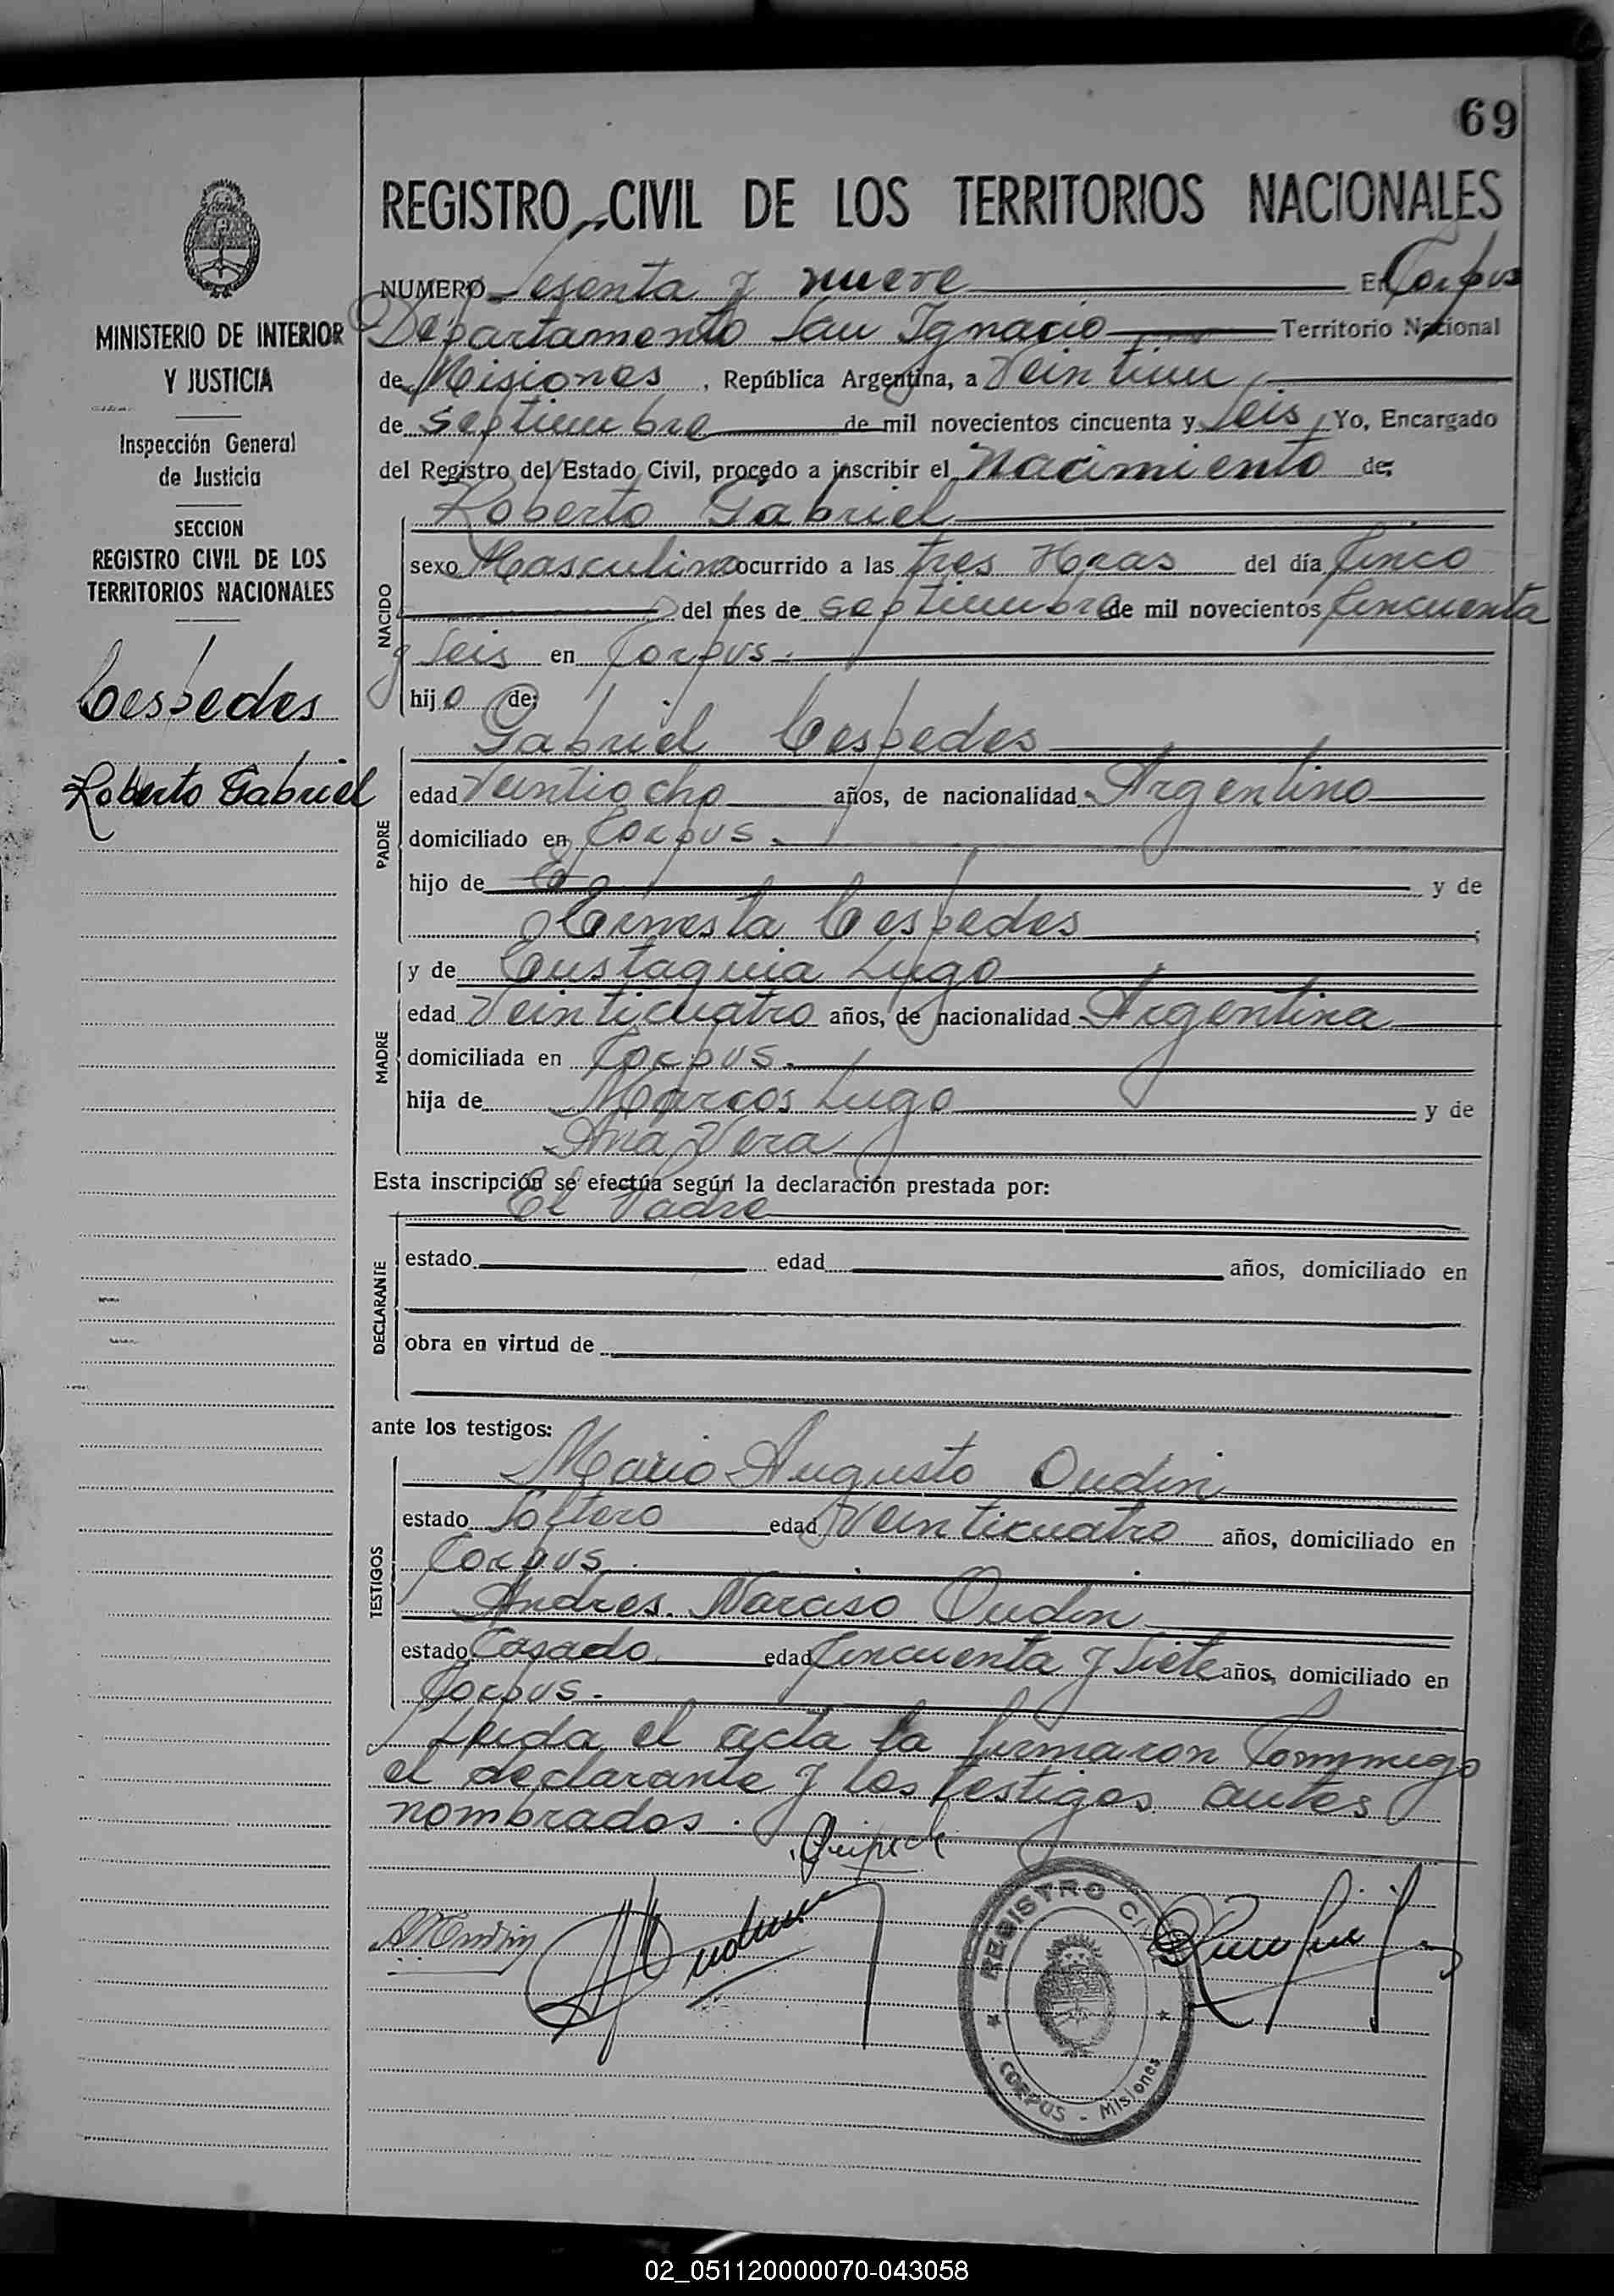 69
REGISTRO CIVIL DE LOS TERRITORIOS NACIONALES
NUMERO Sesenta y nueve En Corpus
Departamento San Ignacio Territorio Nacional
de Misiones, República Argentina, a Veintiun
de septiembre de mil novecientos cincuenta y Seis, Yo, Encargado
del Registro del Estado Civil, procedo a inscribir el Nacimiento de:
Roberto Gabriel
NACIDO
sexo Masculino ocurrido a las tres Horas del día Cinco
del mes de septiembre de mil novecientos Cincuenta
y Seis en Corpus.
hijo de:
Gabriel Cespedes
PADRE
edad Veintiocho años, de nacionalidad Argentino
domiciliado en Corpus.
hijo de y de
Ernesta Cespedes
MADRE
y de Eustaquia Lugo
edad Veinticuatro años, de nacionalidad Argentina
domiciliada en Corpus.
hija de Marcos Lugo y de
Ana Vera
Esta inscripción se efectúa según la declaración prestada por:
El Padre
DECLARANTE
estado edad años, domiciliado en
obra en virtud de
ante los testigos:
TESTIGOS
Mario Augusto Oudin
estado Soltero edad Veinticuatro años, domiciliado en
Corpus.
Andres Narciso Oudin
estado Casado edad Cincuenta y Siete años, domiciliado en
Corpus.
Leida el acta la firmaron Commigo
el declarante y los testigos antes
nombrados.
REGISTRO CIVIL
CORPUS - Misiones
MINISTERIO DE INTERIOR
Y JUSTICIA
Inspección General
de Justicia
SECCION
REGISTRO CIVIL DE LOS
TERRITORIOS NACIONALES
Cespedes
Roberto Gabriel
02_051120000070-043058